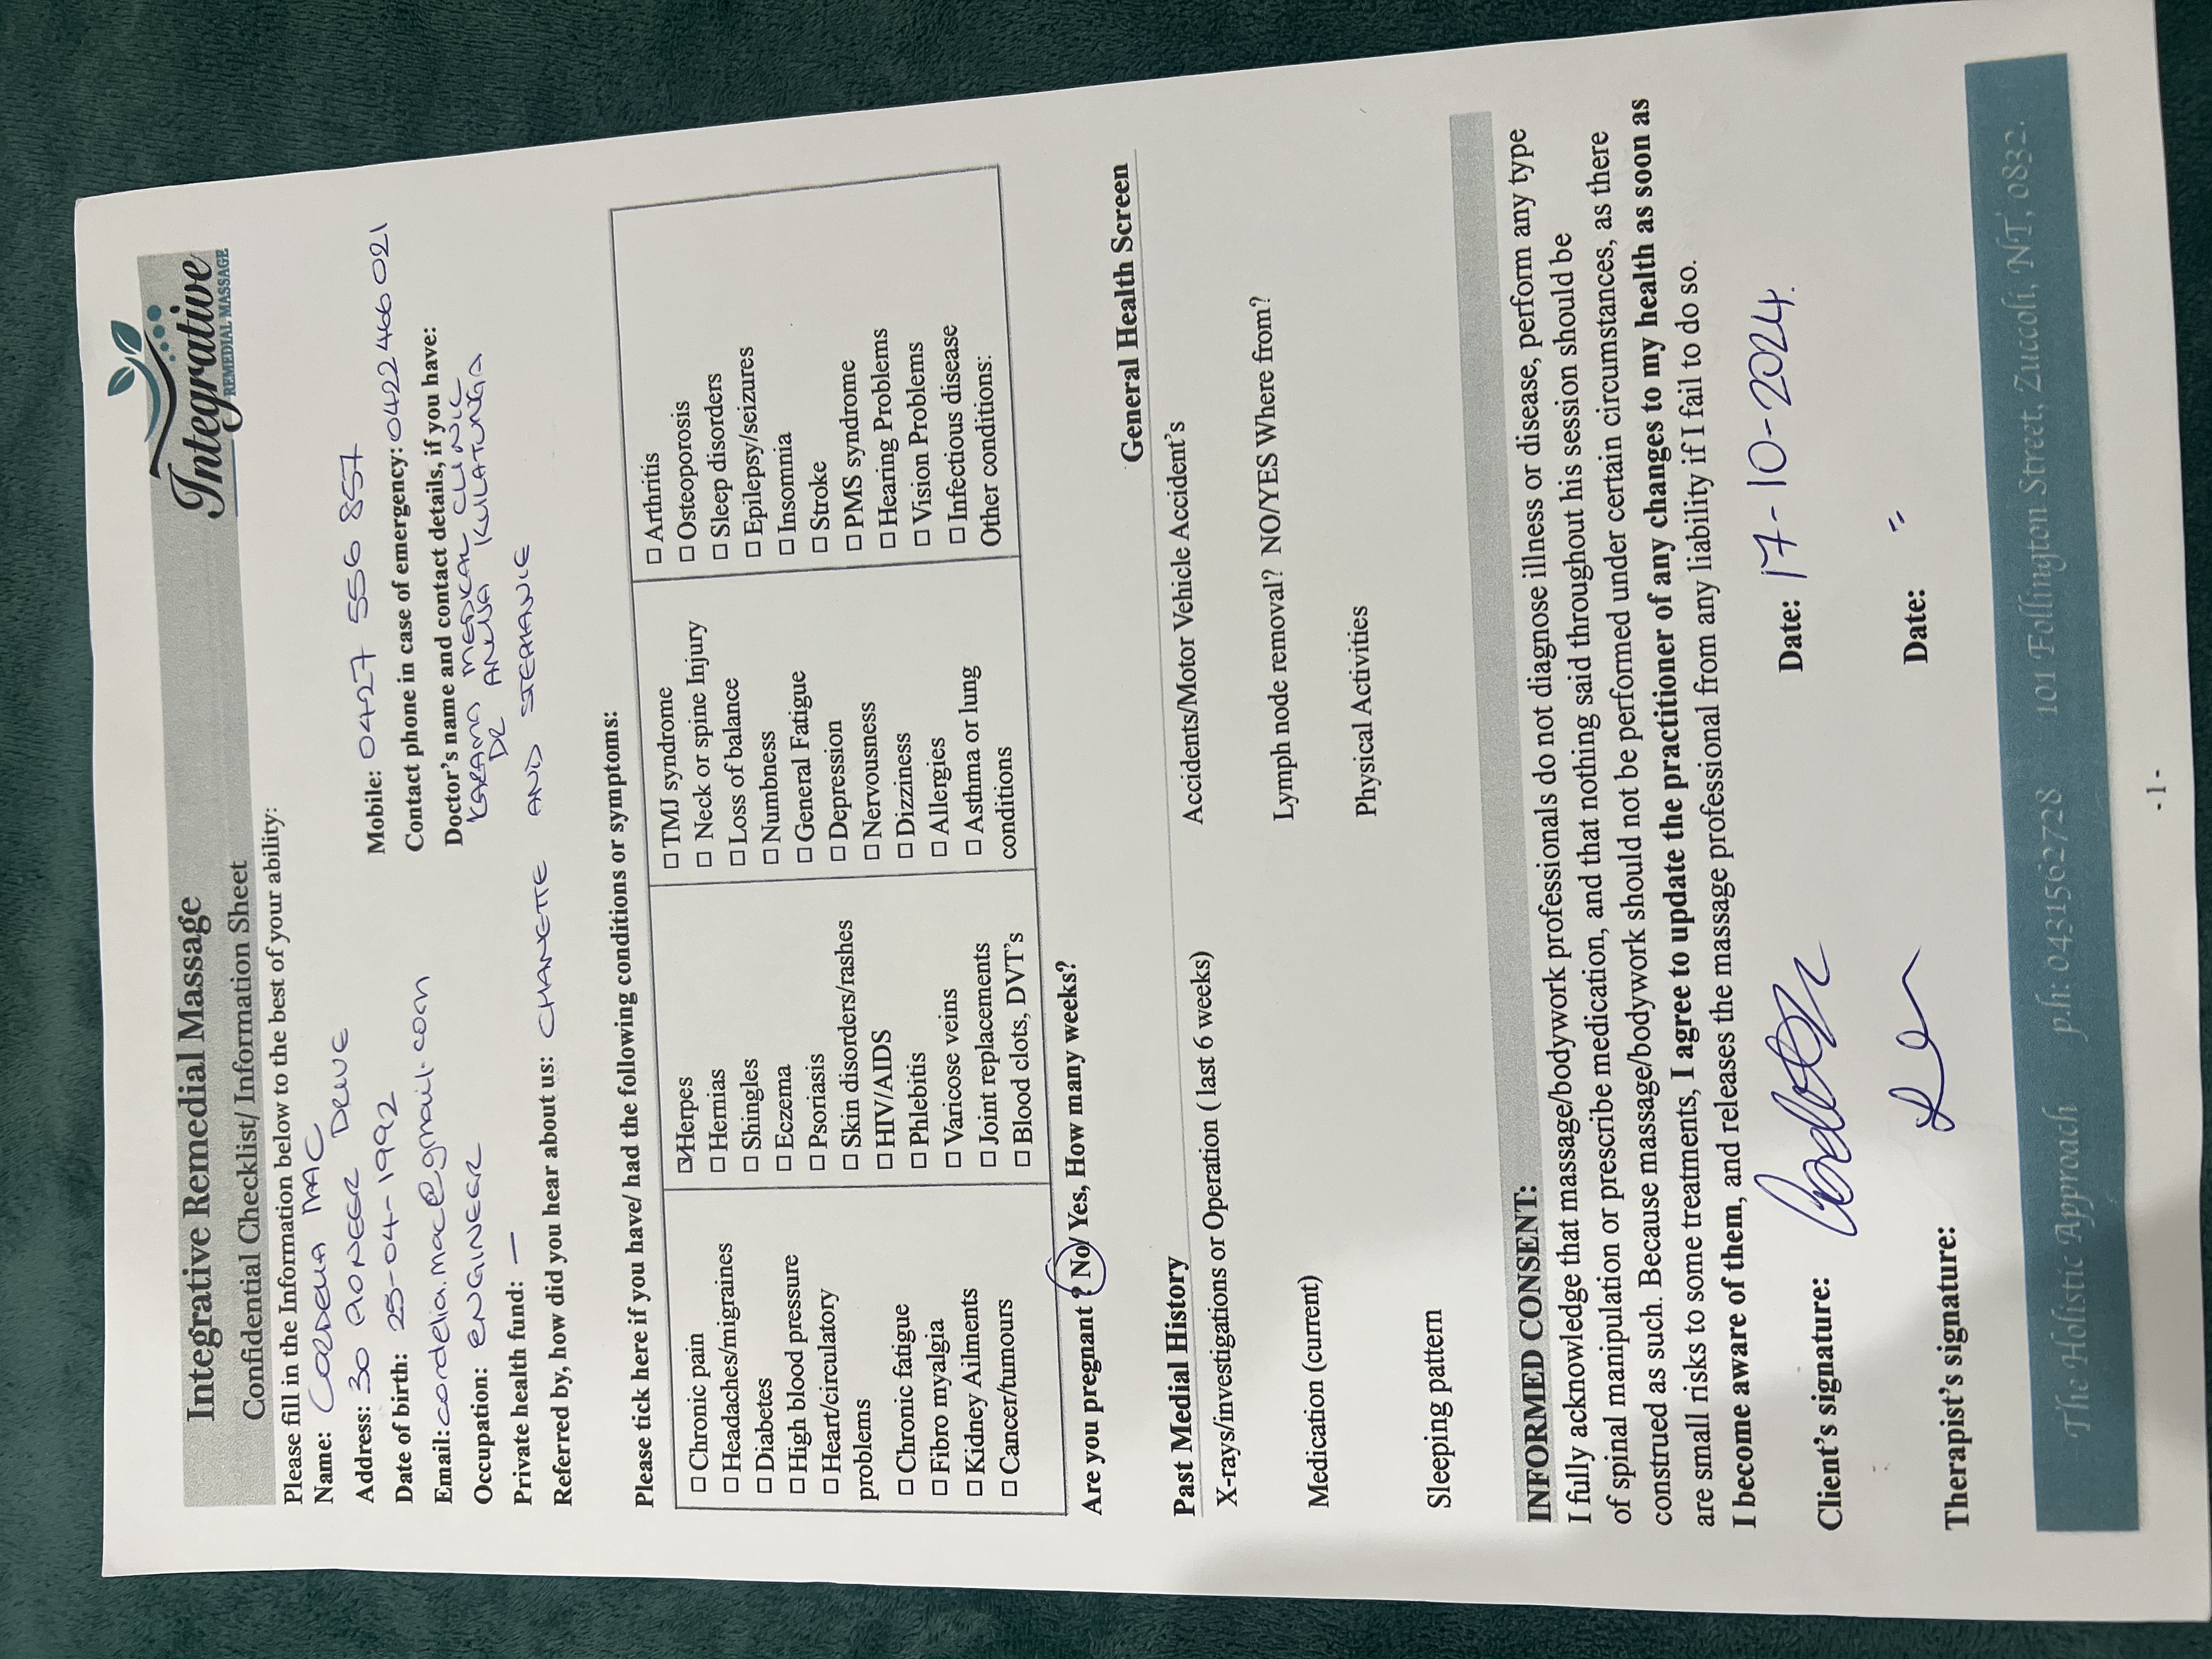 Integrative Remedial Massage
Confidential Checklist/ Information Sheet
Integrative
REMEDIAL MASSAGE
Please fill in the Information below to the best of your ability:
Name: CORDELIA MAC
Address: 30 PIONEER DRIVE
Mobile: 0427 556 857
Date of birth: 25-04-1992
Contact phone in case of emergency: 0422 466 021
Email: cordelia.mac@gmail.com
Doctor's name and contact details, if you have:
KARAMA MEDICAL CLINIC
DR ANULA KULATUNGA
Occupation: ENGINEER
Private health fund: —
Referred by, how did you hear about us: CHANETTE AND STEPHANIE
Please tick here if you have/ had the following conditions or symptoms:
☐ Chronic pain
☐ Headaches/migraines
☐ Diabetes
☐ High blood pressure
☐ Heart/circulatory
problems
☐ Chronic fatigue
☐ Fibro myalgia
☐ Kidney Ailments
☐ Cancer/tumours
☑ Herpes
☐ Hernias
☐ Shingles
☐ Eczema
☐ Psoriasis
☐ Skin disorders/rashes
☐ HIV/AIDS
☐ Phlebitis
☐ Varicose veins
☐ Joint replacements
☐ Blood clots, DVT's
☐ TMJ syndrome
☐ Neck or spine Injury
☐ Loss of balance
☐ Numbness
☐ General Fatigue
☐ Depression
☐ Nervousness
☐ Dizziness
☐ Allergies
☐ Asthma or lung
conditions
☐ Arthritis
☐ Osteoporosis
☐ Sleep disorders
☐ Epilepsy/seizures
☐ Insomnia
☐ Stroke
☐ PMS syndrome
☐ Hearing Problems
☐ Vision Problems
☐ Infectious disease
Other conditions:
Are you pregnant ? No/ Yes, How many weeks?
General Health Screen
Past Medial History
X-rays/investigations or Operation ( last 6 weeks)
Accidents/Motor Vehicle Accident's
Medication (current)
Lymph node removal? NO/YES Where from?
Sleeping pattern
Physical Activities
INFORMED CONSENT:
I fully acknowledge that massage/bodywork professionals do not diagnose illness or disease, perform any type
of spinal manipulation or prescribe medication, and that nothing said throughout his session should be
construed as such. Because massage/bodywork should not be performed under certain circumstances, as there
are small risks to some treatments, I agree to update the practitioner of any changes to my health as soon as
I become aware of them, and releases the massage professional from any liability if I fail to do so.
Client's signature:
Date: 17-10-2024.
Therapist's signature:
Date: "
The Holistic Approach p.h: 0431562728 101 Follington Street, Zuccoli, NT, 0832.
- 1 -